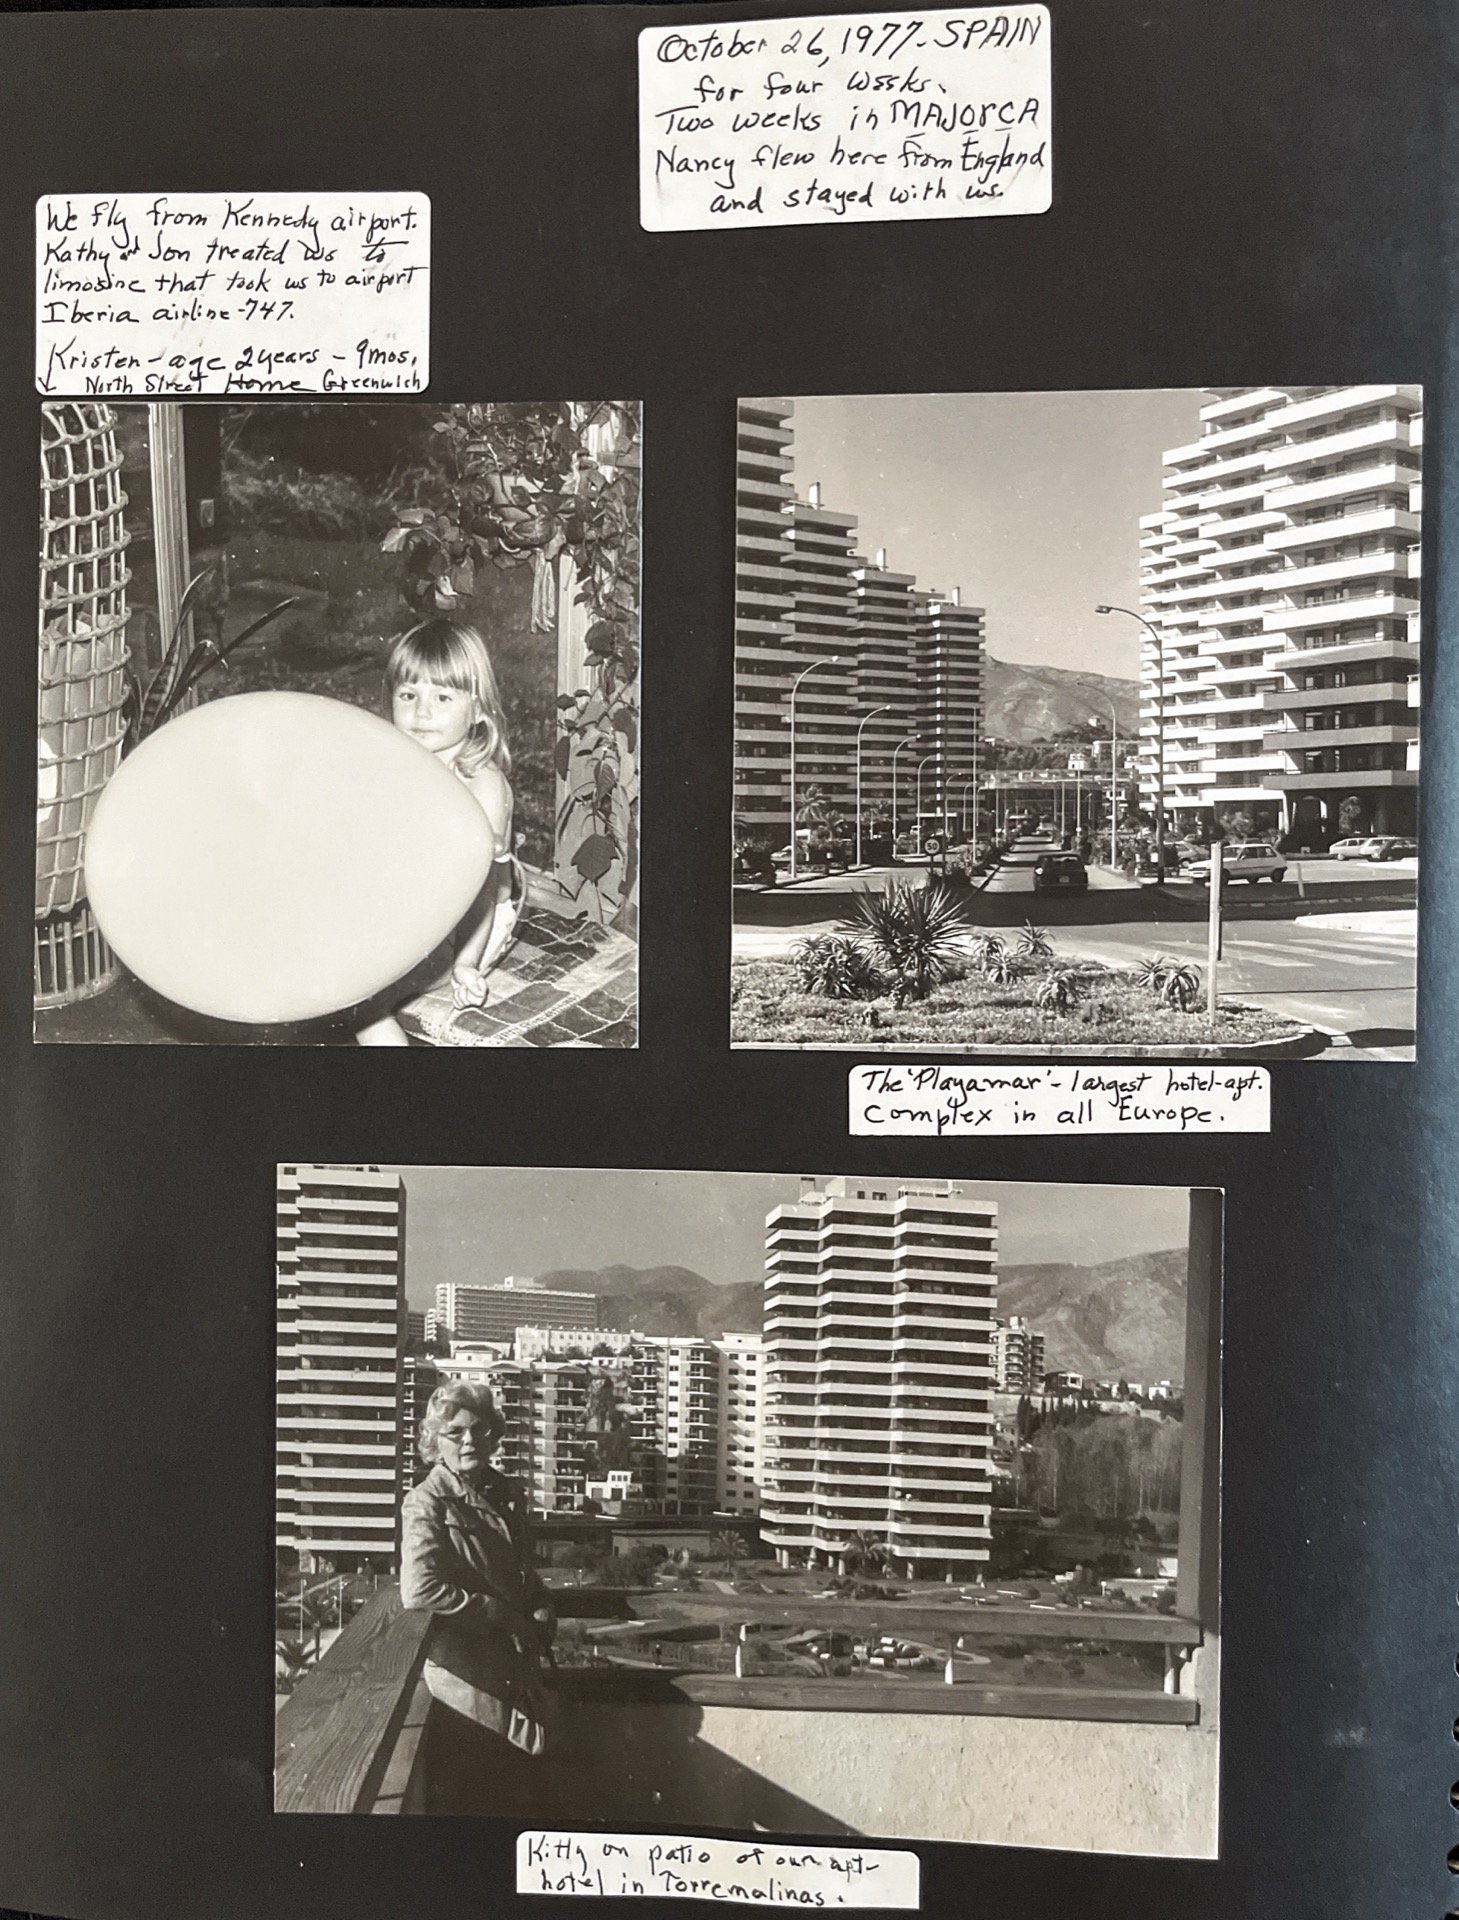 October 26, 1977. SPAIN
for four weeks.
Two weeks in MAJORCA
Nancy flew here from England
and stayed with us.
We fly from Kennedy airport.
Kathy and Jon treated us to
limosine that took us to airport
Iberia airline -747.
Kristen - age 2 years - 9 mos.
↓ North Street Home Greenwich
50
The 'Playamar' - largest hotel-apt.
complex in all Europe.
Kitty on patio of our apt-
hotel in Torremalinas.